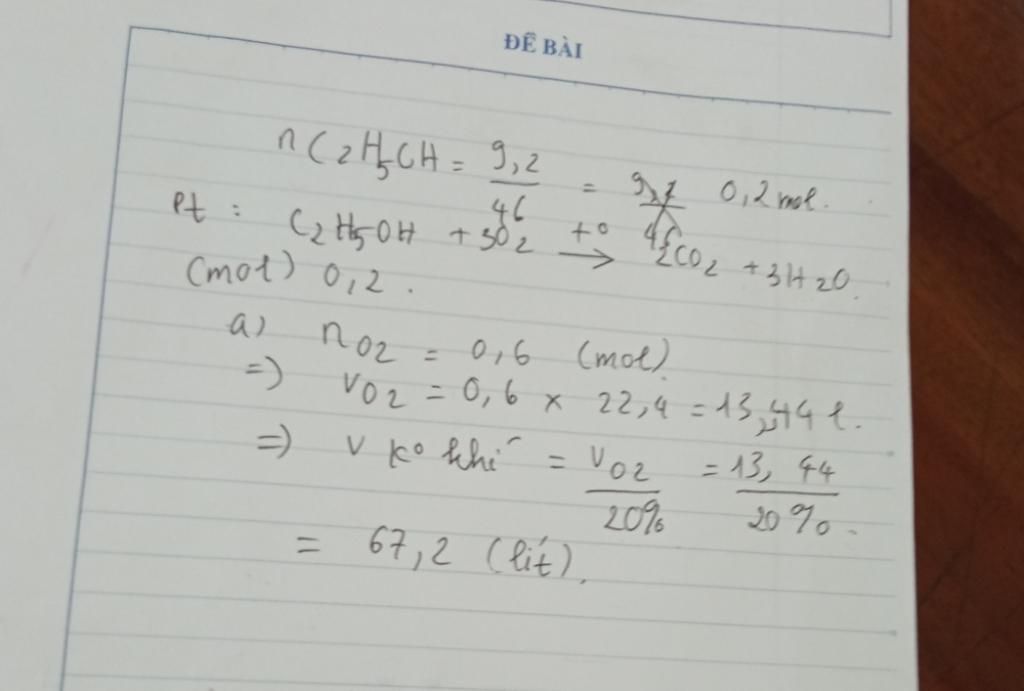 ĐỀ BÀI
nC2H5CH = 9,2/46 = 0,2 mol.
Pt : C2H5OH + 3O2 t° → 2CO2 + 3H2O.
(mol) 0,2.
a) nO2 = 0,6 (mol)
=) VO2 = 0,6 x 22,4 = 13,44 l.
=) V ko khí = VO2/20% = 13,44/20%.
= 67,2 (lít).